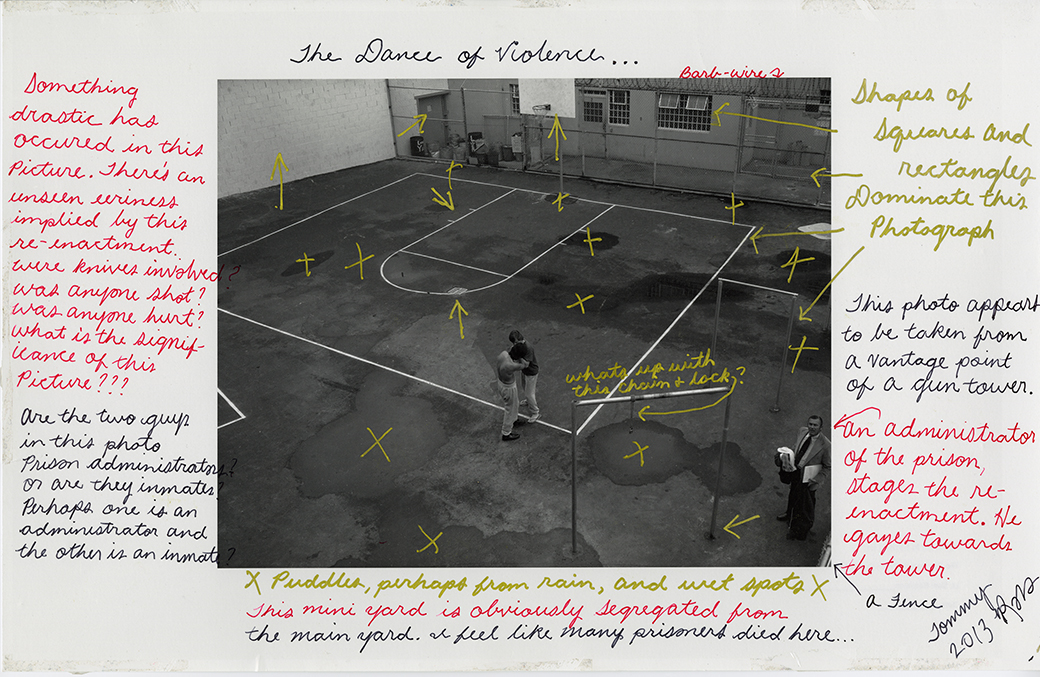 The Dance of Violence...
Barb-wires
Something
drastic has
occured in this
Picture. There's an
unseen eeriness
implied by this
re-enactment.
were knives involved?
was anyone shot?
was anyone hurt?
what is the signif-
icance of this
Picture???
Are the two guys
in this photo
Prison administrators?
or are they inmates?
Perhaps one is an
administrator and
the other is an inmate?
whats up with
this chain & lock?
Shapes of
Squares and
rectangles
Dominate this
Photograph
This photo appears
to be taken from
a vantage point
of a gun tower.
An administrator
of the prison,
stages the re-
enactment. He
gazes towards
the tower.
a Fence
X Puddles, perhaps from rain, and wet spots X
This mini yard is obviously segregated from
the main yard. I feel like many prisoners died here...
Tommy
2013